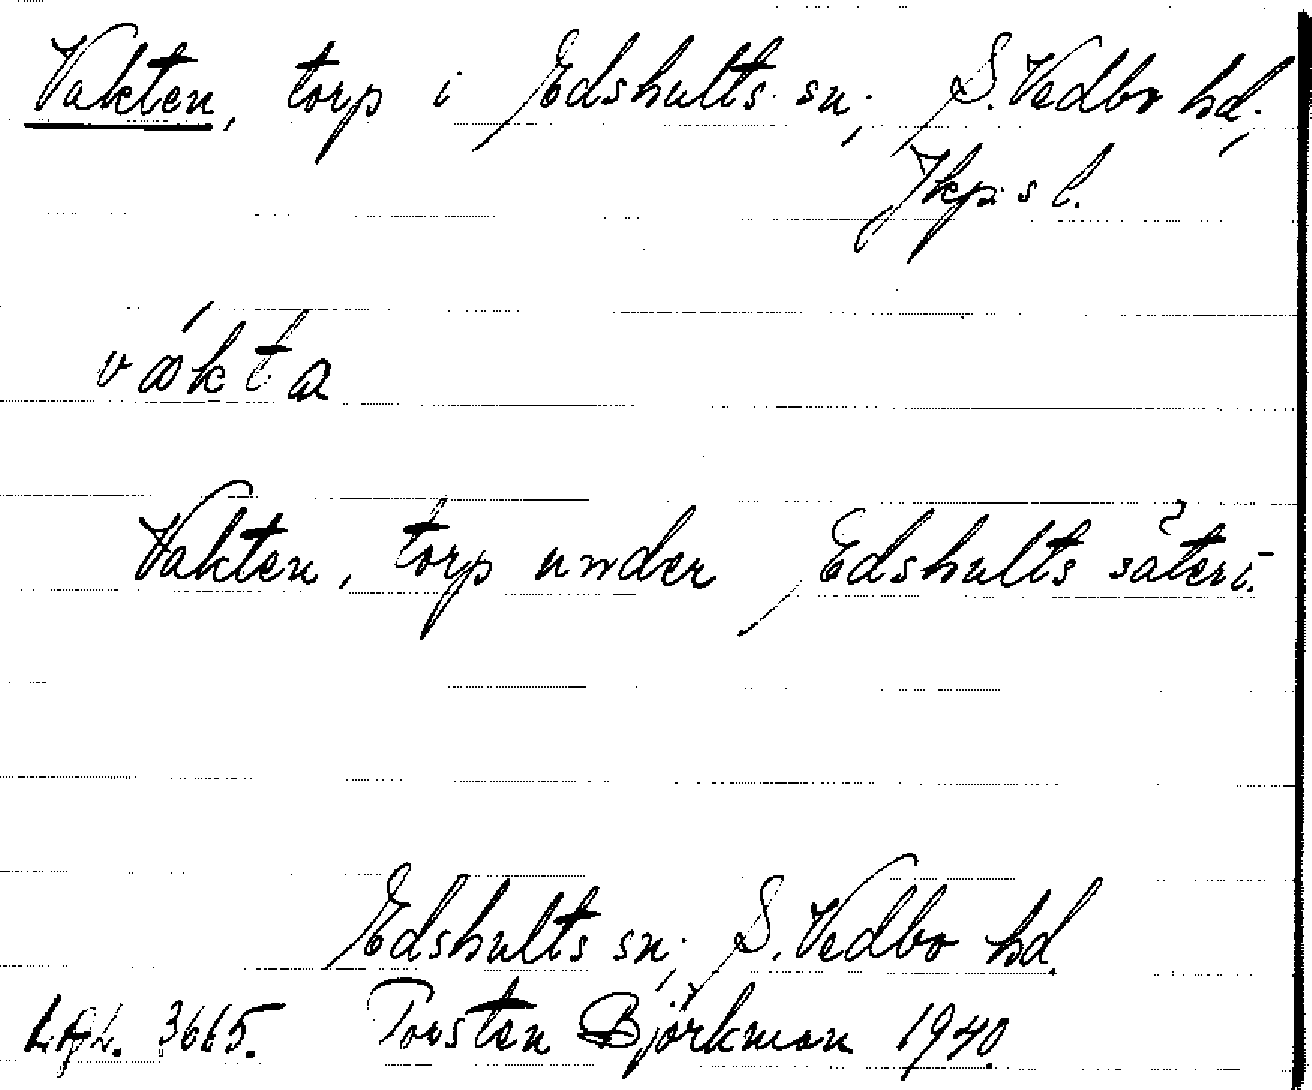 Vakten, torp i Edshults sn, S. Vedbo hd,
Jkp:s l.
vákta
Vakten, torp under Edshults säteri.
Edshults sn, S. Vedbo hd.
3665. Torsten Björkman 1940.